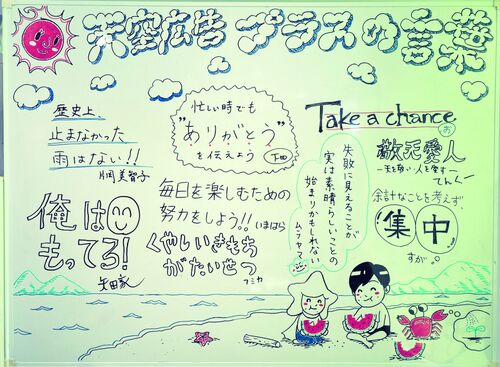 天空広告 プラスの言葉
歴史上
止まなかった
雨はない!!
片岡美智子
忙しい時でも
"ありがとう"
を伝えよう
下田
Take a chance
お
敬天愛人
ー天を敬い人を愛すー
てんくー
俺は
もってる!
矢田家
毎日を楽しむための
努力をしよう!!
いまはら
くやしいきもち
がたいせつ
フミカ
失敗に見えることが
実は素晴らしいことの
始まりかもしれない
ムラヤマ
余計なことを考えず
集中
すが。